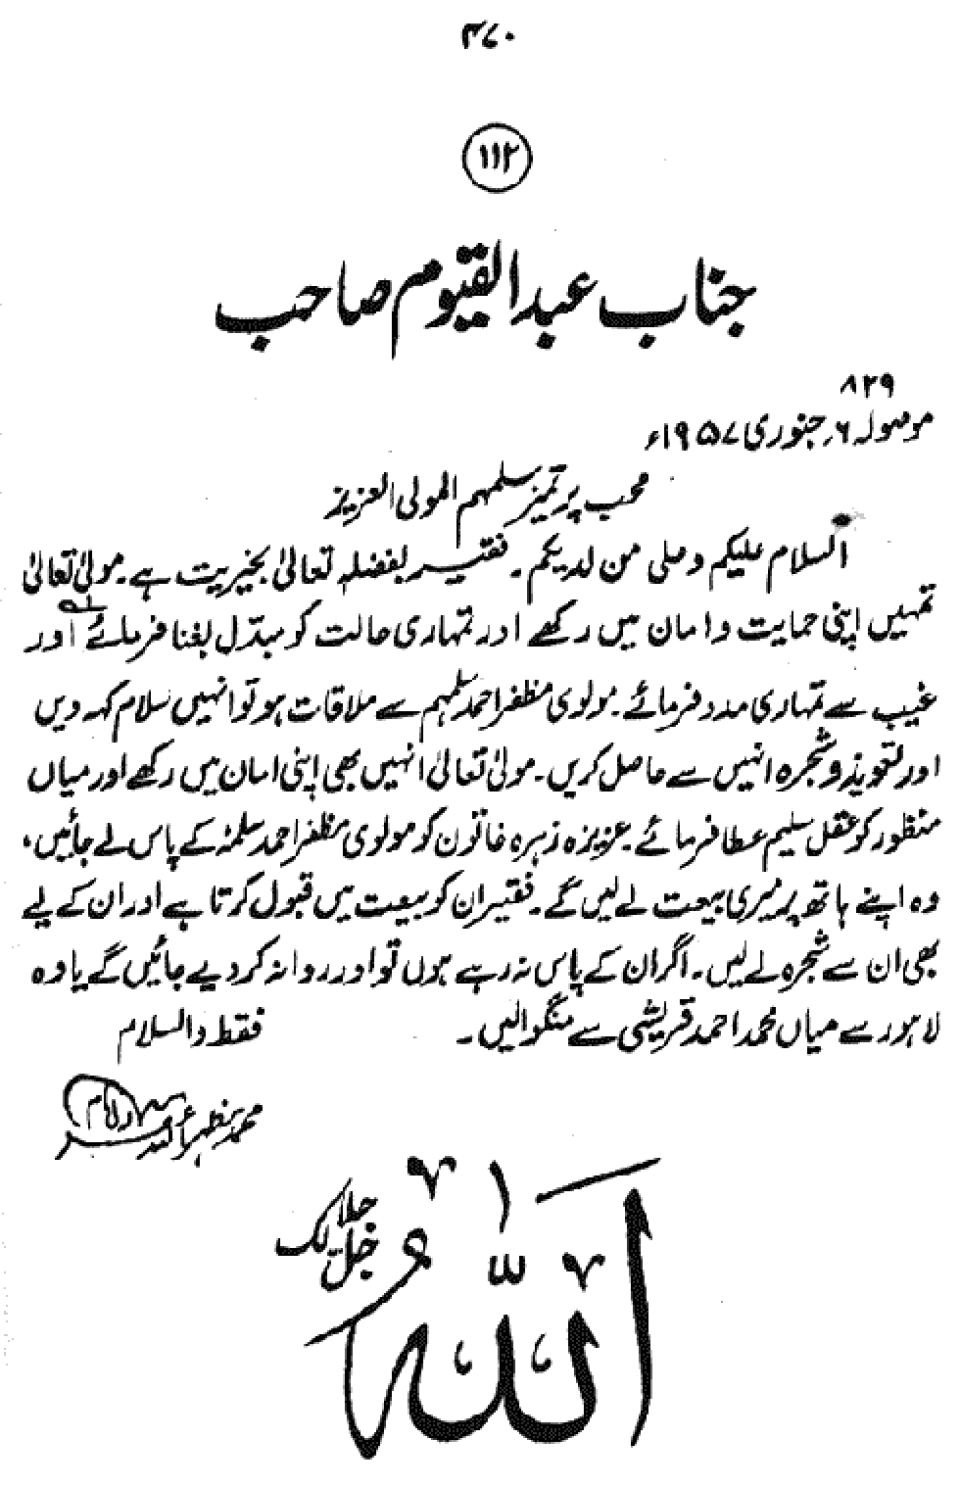 ۳۷۰
۱۱۲
جناب عبدالقیوم صاحب
۸۲۹
موصولہ ۶؍ جنوری ۱۹۵۷ء
محب پر تمیز سلمہم المولی العزیز
السلام علیکم وعلی من لدیکم۔ فقیر بفضلہ تعالیٰ بخیریت ہے۔ مولیٰ تعالیٰ
تمہیں اپنی حمایت و امان میں رکھے اور تمہاری حالت کو مبدّل بغنا فرمائے اور
غیب سے تمہاری مدد فرمائے۔ مولوی مظفر احمد سلمہم سے ملاقات ہو تو انہیں سلام کہہ دیں
اور تعویذ و شجرہ انہیں سے حاصل کریں۔ مولیٰ تعالیٰ انہیں بھی اپنی امان میں رکھے اور میاں
منظور کو عقل سلیم عطا فرمائے۔ عزیزہ زہرہ خاتون کو مولوی مظفر احمد سلمہٗ کے پاس لے جائیں،
وہ اپنے ہاتھ پر میری بیعت لے لیں گے۔ فقیر ان کو بیعت میں قبول کرتا ہے اور ان کے لیے
بھی ان سے شجرہ لے لیں۔ اگر ان کے پاس نہ رہے ہوں تو اور روانہ کر دیے جائیں گے یا وہ
لاہور سے میاں محمد احمد قریشی سے منگوالیں۔ فقط والسلام
محمد مظہر اللہ
اللہ
جل جلالک